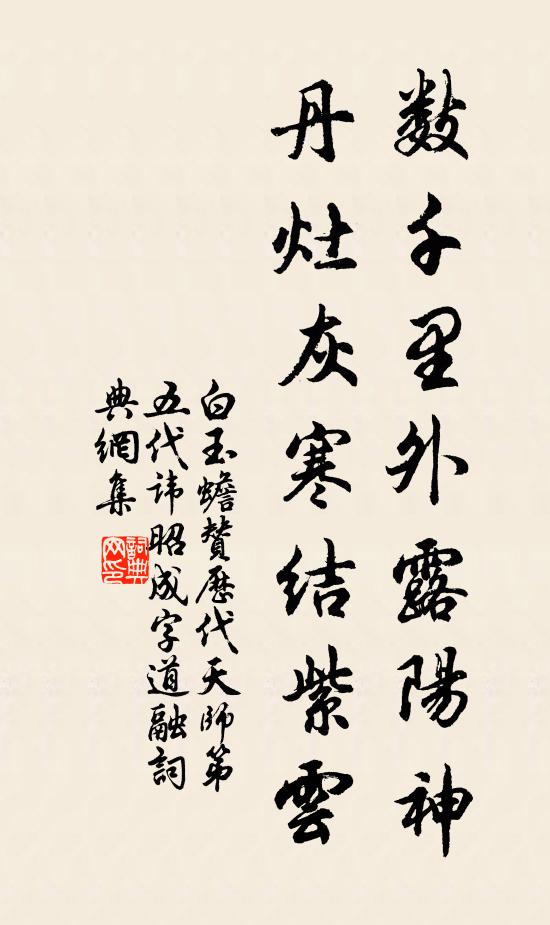 数千里外露陽神
丹灶灰寒結紫雲
白玉蟾贊歷代天師第
五代諱昭成字道融詞
典網集
詞典网印